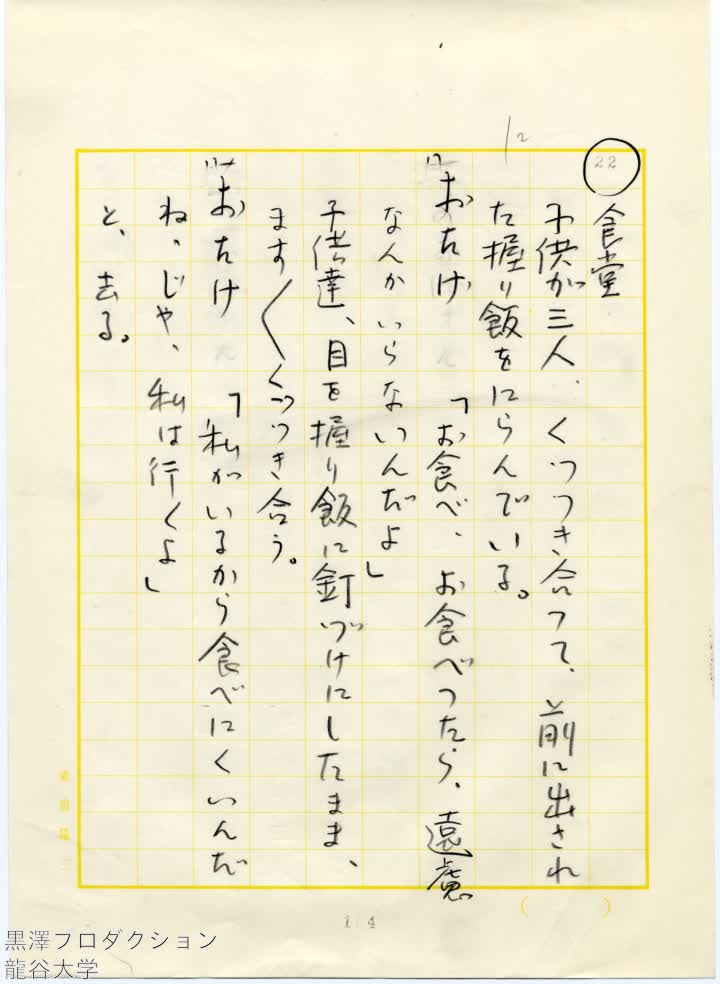 12
22
食堂
子供が三人、くつつき合つて、前に出され
た握り飯をにらんでいる。
おたけ「お食べ、お食べつたら、遠慮
なんかいらないんだよ」
子供達、目を握り飯に釘づけにしたまま、
ます〱くつつき合う。
おたけ「私がいるから食べにくいんだ
ね、じや、私は行くよ」
と、去る。
14
黒澤プロダクション
龍谷大学